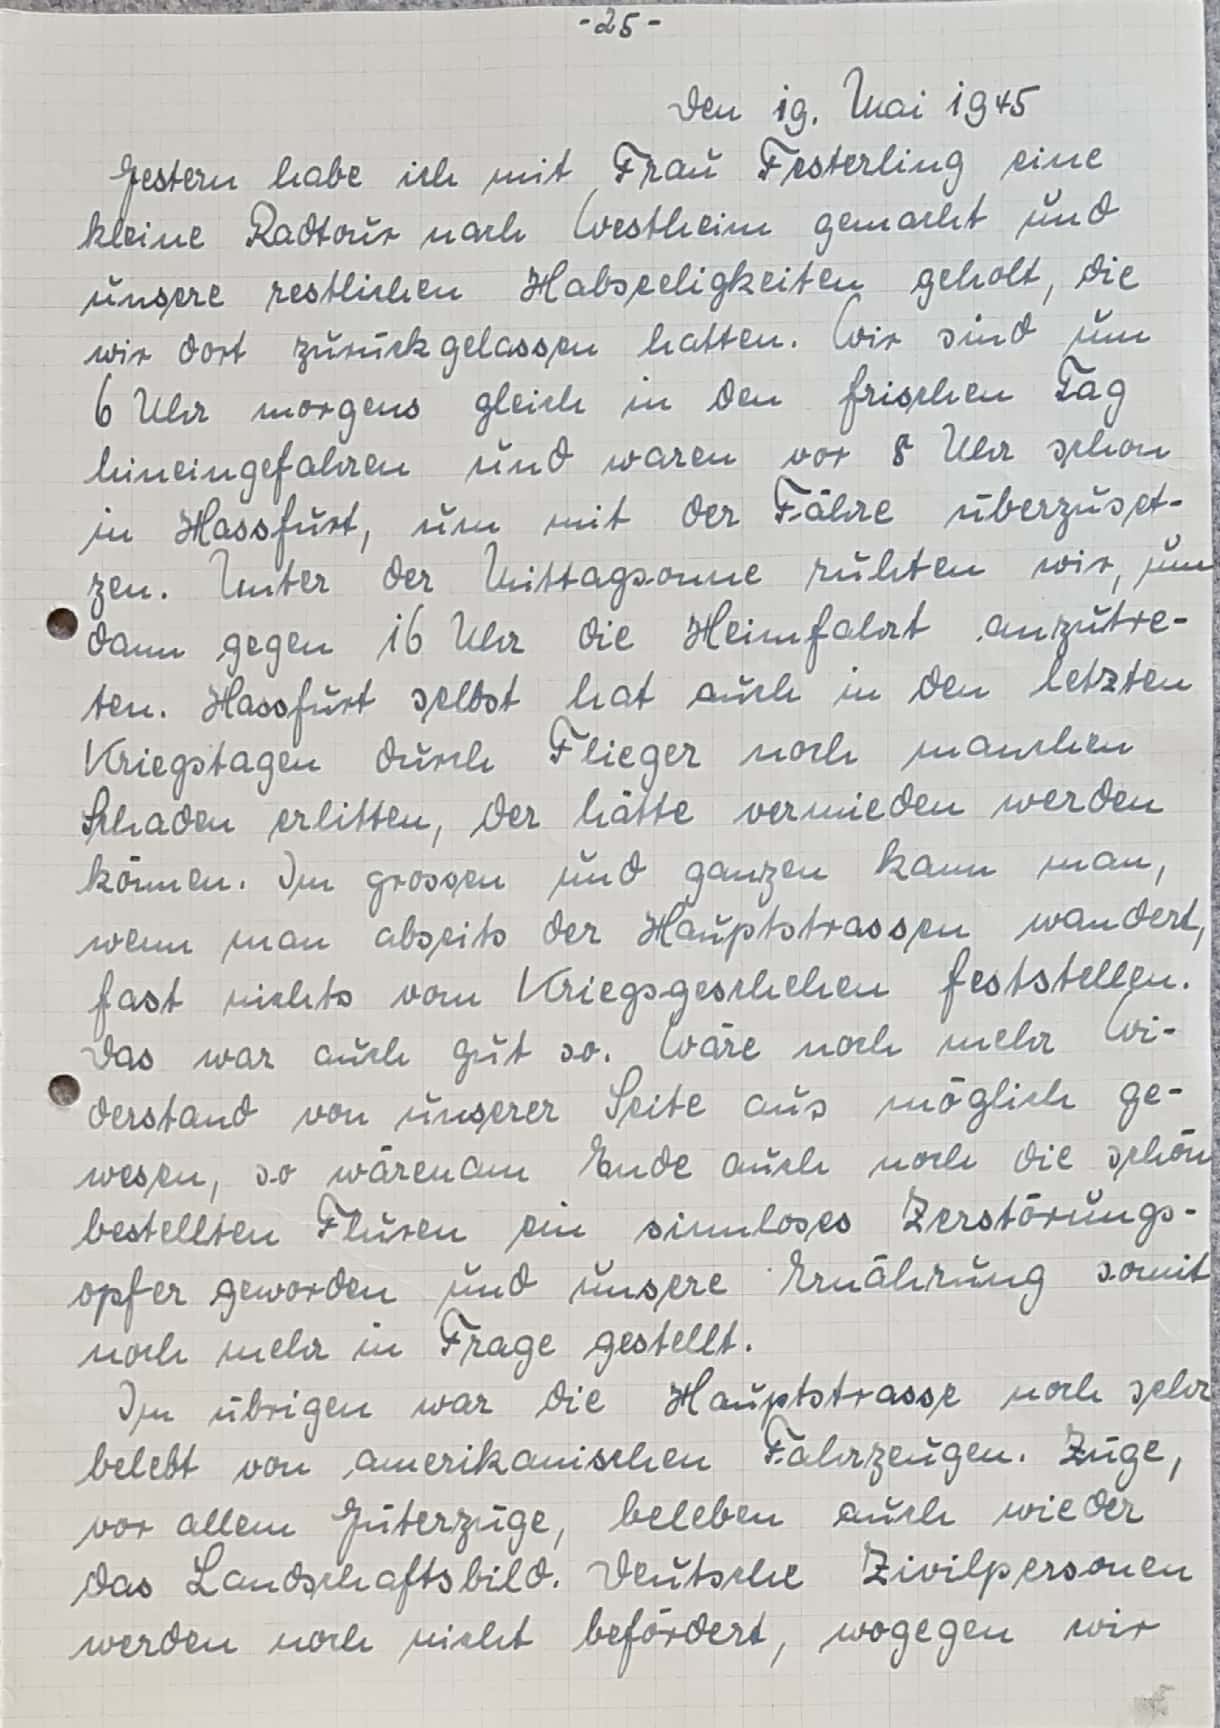 -25-
Den 19. Mai 1945
Gestern habe ich mit Frau Festerling eine
kleine Radtour nach Westheim gemacht und
unsere restlichen Habseeligkeiten geholt, die
wir dort zurückgelassen hatten. Wir sind um
6 Uhr morgens gleich in den frischen Tag
hineingefahren und waren vor 8 Uhr schon
in Hassfurt, um mit der Fähre überzuset-
zen. Unter der Mittagsonne ruhten wir, um
dann gegen 16 Uhr die Heimfahrt anzutre-
ten. Hassfurt selbst hat auch in den letzten
Kriegstagen durch Flieger noch manchen
Schaden erlitten, der hätte vermieden werden
können. Im grossen und ganzen kann man,
wenn man abseits der Hauptstrassen wandert,
fast nichts vom Kriegsgeschehen feststellen.
Das war auch gut so. Wäre noch mehr Wi-
derstand von unserer Seite aus möglich ge-
wesen, so wären am Ende auch noch die schön
bestellten Fluren ein sinnloses Zerstörungs-
opfer geworden und unsere Ernährung somit
noch mehr in Frage gestellt.
Im übrigen war die Hauptstrasse noch sehr
belebt von amerikanischen Fahrzeugen. Züge,
vor allem Güterzüge, beleben auch wieder
das Landschaftsbild. Deutsche Zivilpersonen
werden noch nicht befördert, wogegen wir